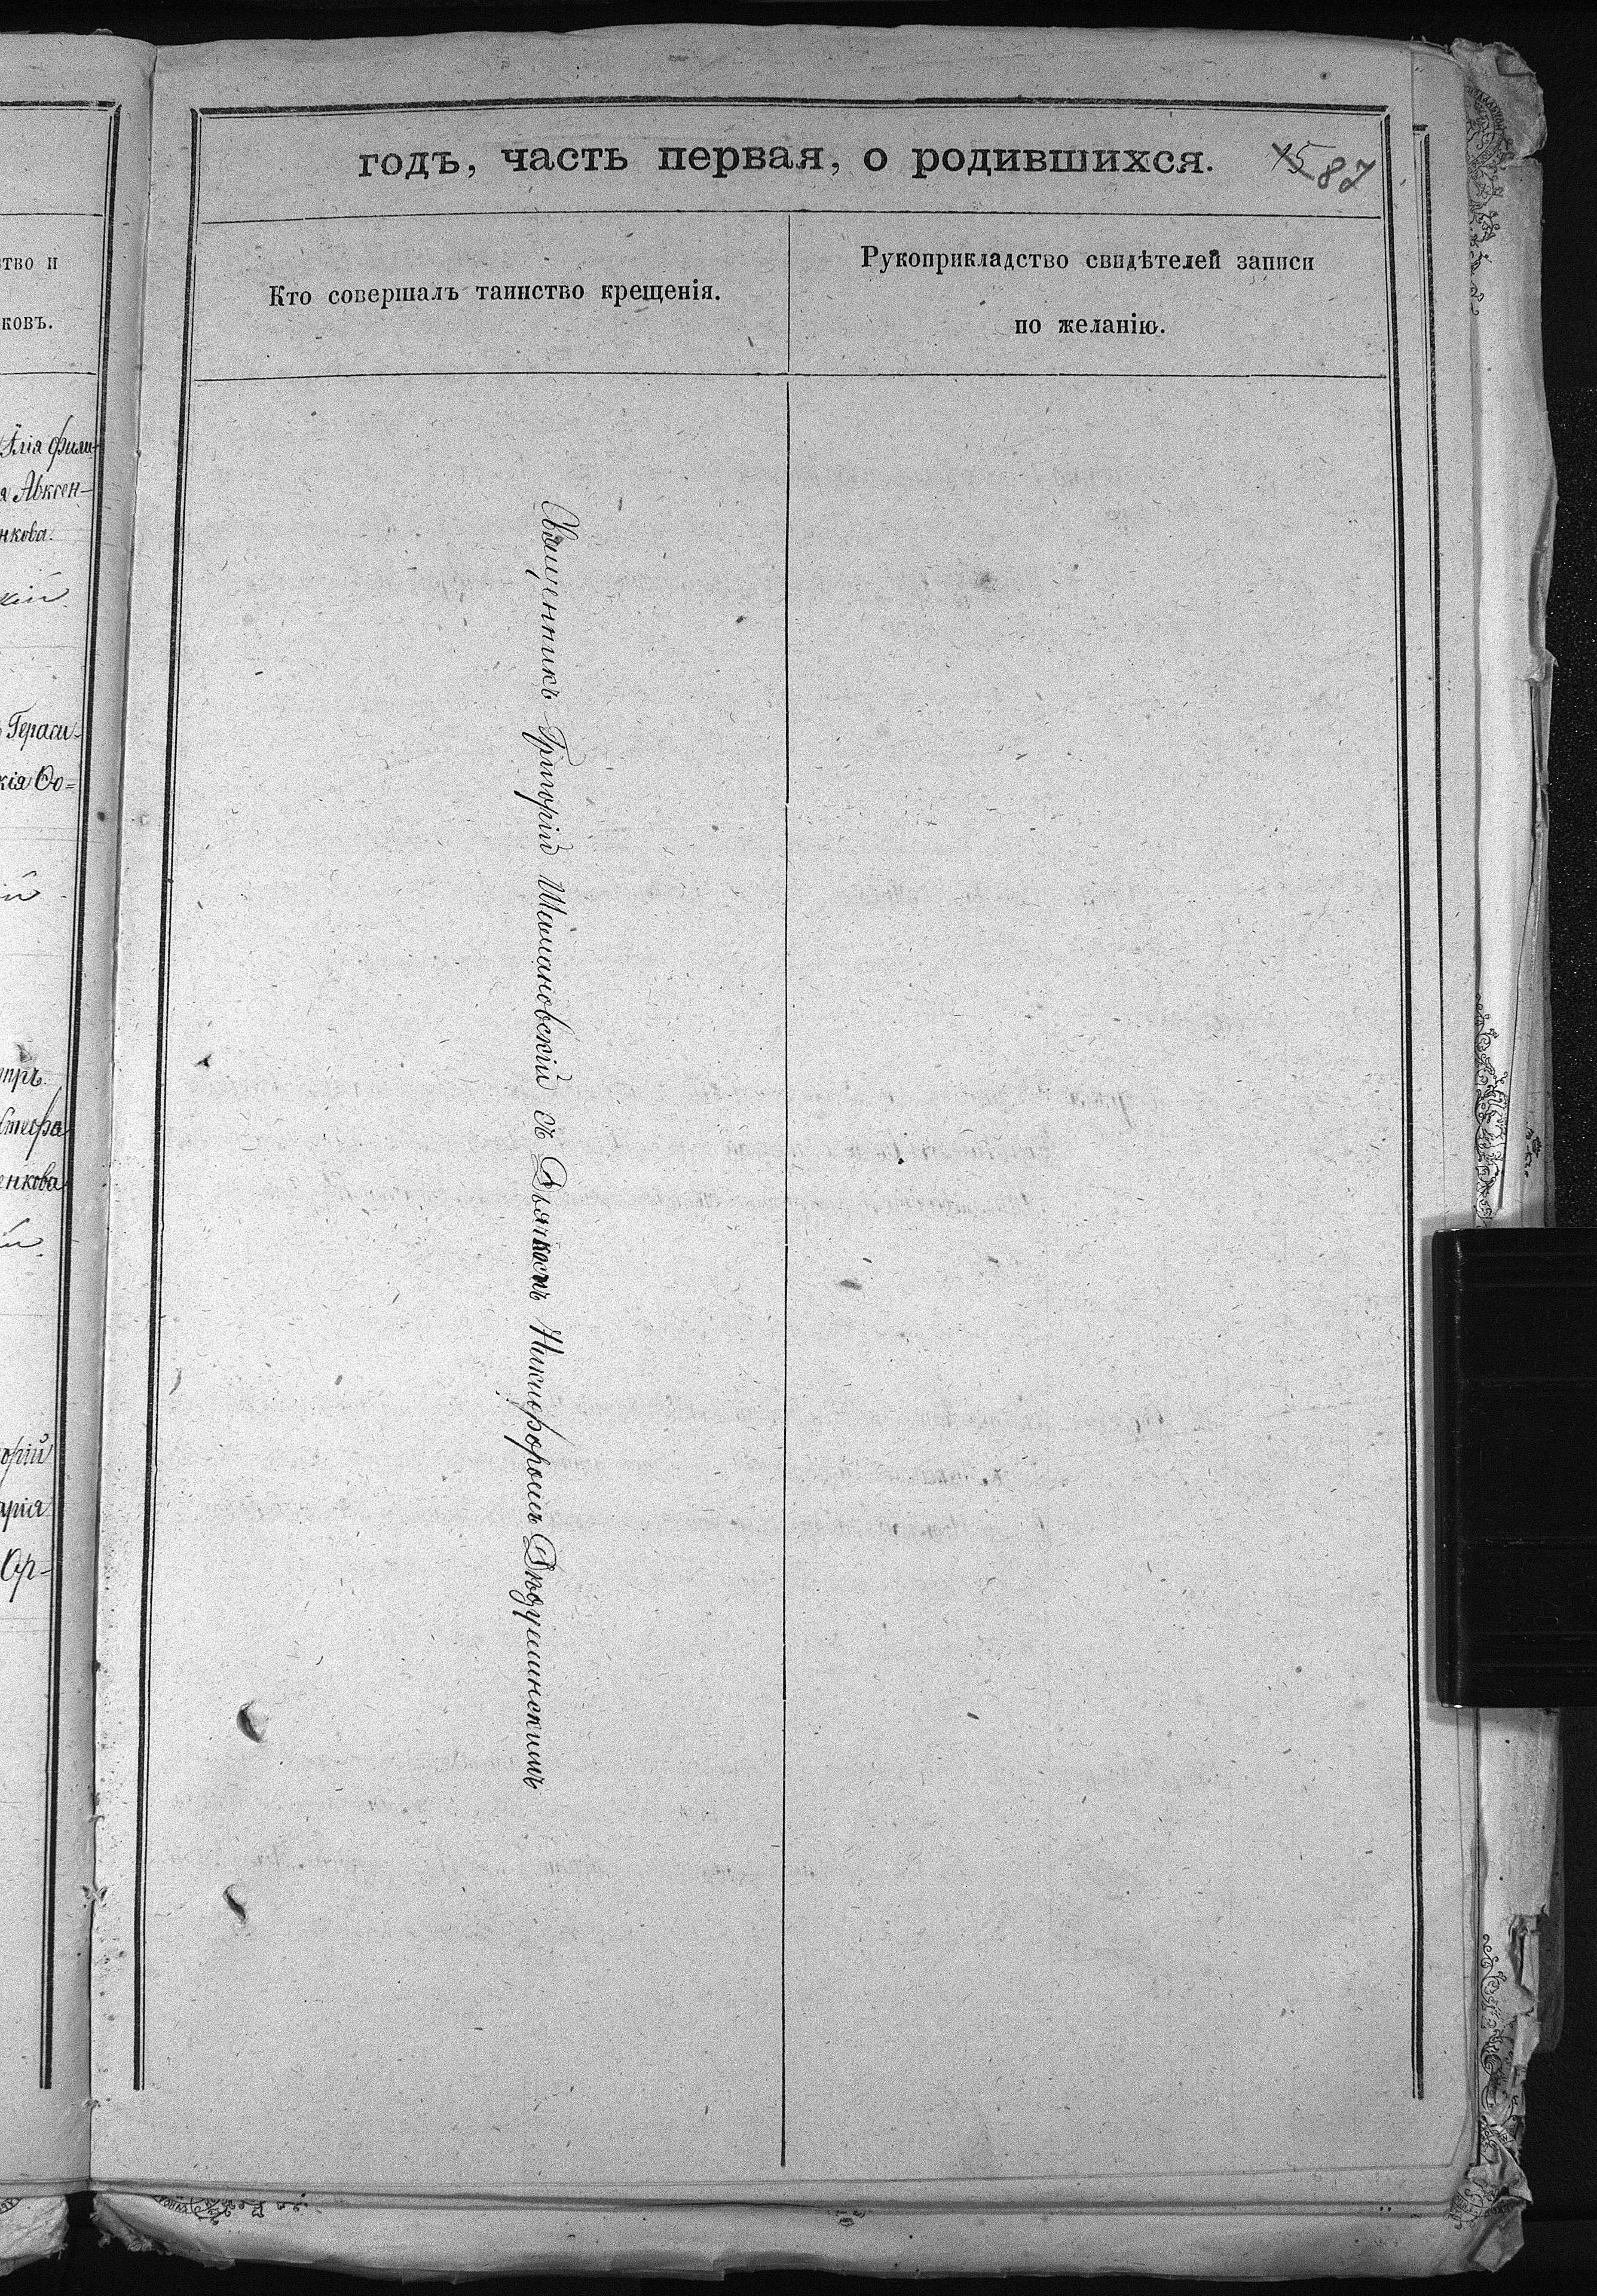 годъ, часть первая, о родившихся. 15 87
Кто совершалъ таинство крещенія.
Рукоприкладство свидѣтелей записи
по желанію.
Священникъ Григорій Шимановскій съ Дьячкомъ Никифоромъ Дѣдушинскимъ
тво и
ковъ.
Илія Фили-
я Авксен-
нкова.
кій
Гераси-
кія Ѳо=
ій
тръ
Стефа
енкова
й
орій
арія
Ор-